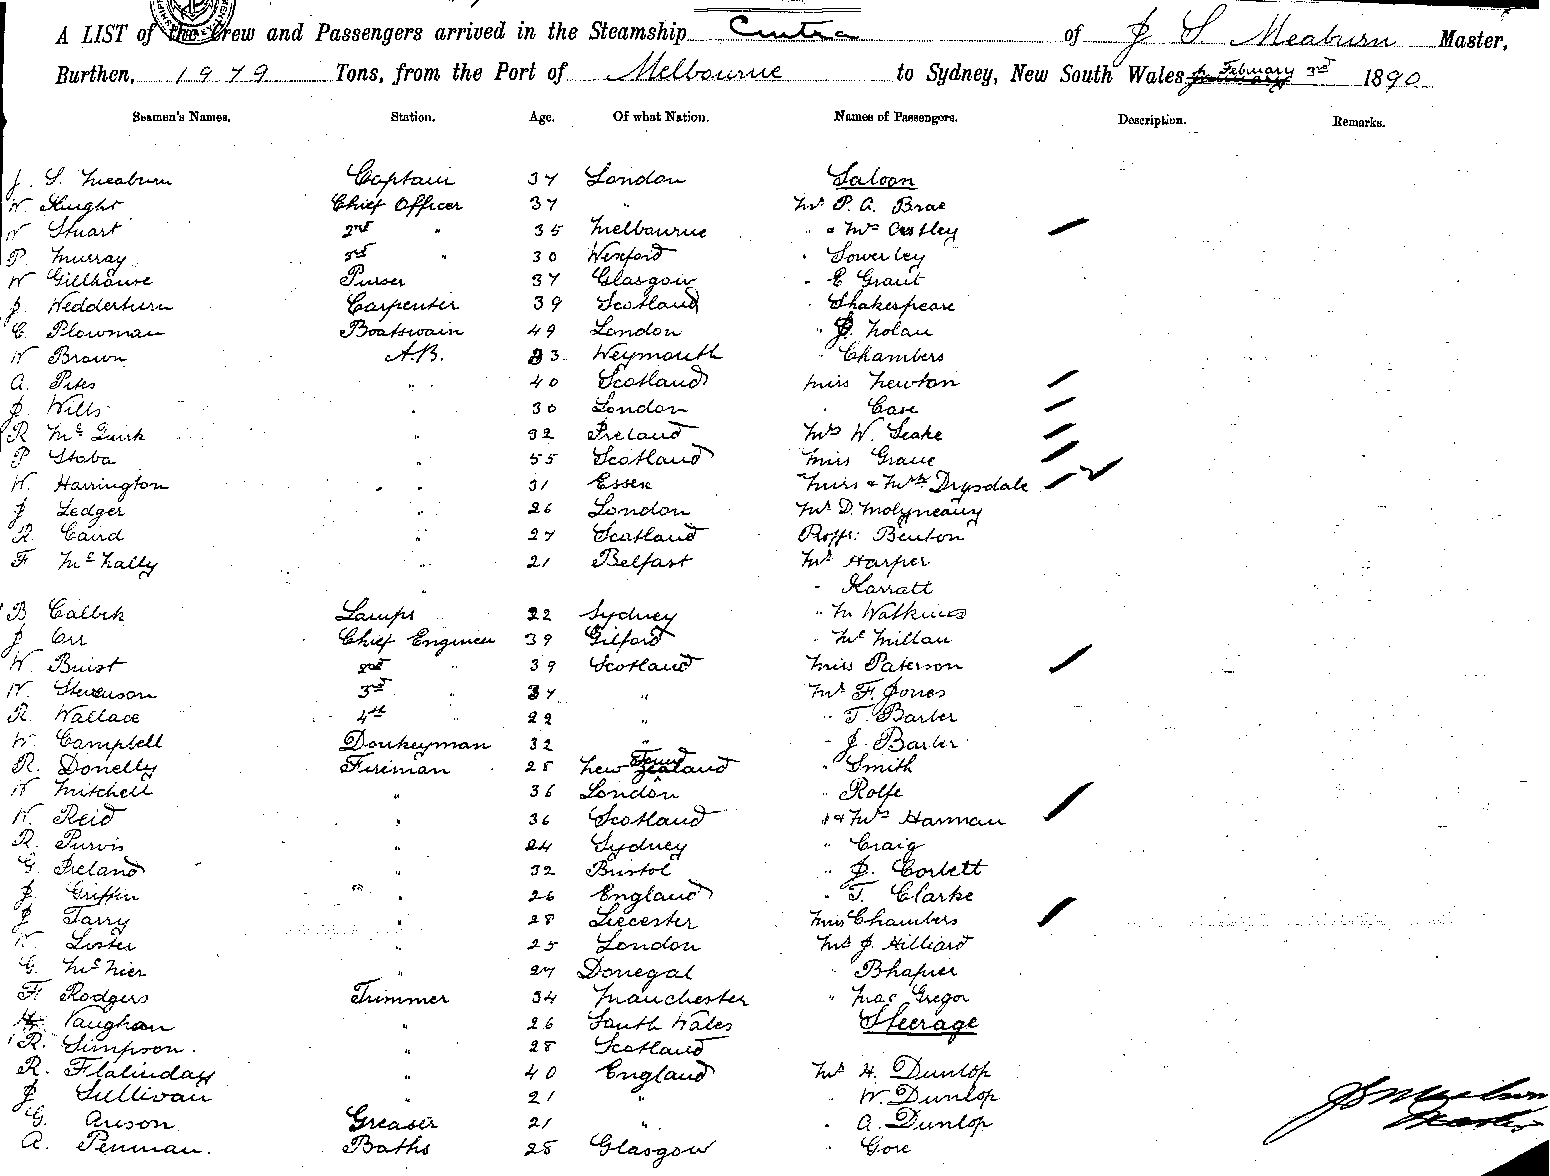 A LIST of the Crew and Passengers arrived in the Steamship Cintra of J S Meaburn Master,
Burthen, 1979 Tons, from the Port of Melbourne to Sydney, New South Wales February 3rd 1890
Seamen's Names. Station. Age. Of what Nation. Names of Passengers. Description. Remarks.
J. S. Meaburn Captain 37 London Saloon
W Knight Chief Officer 37 " Mr P. A. Brae
W Stuart 2nd " 35 Melbourne " & Mrs
P. Murray 3rd " 30 Wexford " Sowerley
W Gillhouse Purser 37 Glasgow " E Grant
J Wedderburn Carpenter 39 Scotland " Shakespeare
C Plowman Boatswain 49 London " J. Nolan
W Brown A.B. 33 Weymouth " Chambers
A. Pitts " 40 Scotland Miss Newton
J Wills " 30 London " Case
R McGurk " 32 Ireland Mrs W. Leake
P Staba " 55 Scotland Miss Graue
W. Harrington " 31 Essex Miss & Mrs Drysdale
J Ledger " 26 London Mr D. Molyneaux
R. Caird " 27 Scotland Proffr: Benton
F McNally " 21 Belfast Mr Harper
" Karratt
B Calbek Lamps 22 Sydney " M Watkins
J Orr Chief Engineer 39 Gilford " McMillan
W. Buist 2nd " 39 Scotland Miss Paterson
W. Stevenson 3rd " 37 " Mr F. Jones
R. Wallace 4th " 22 " " T. Barber
W Campbell Donkeyman 32 " " J. Barber
R. Donelly Fireman 25 New Foundland " Smith
W Mitchell " 36 London " Rolfe
W. Reid " 36 Scotland " & Mrs Harman
R. Purvis " 24 Sydney " Craig
G. Ireland " 32 Bristol " J. Corbett
J. Griffin " 26 England " T. Clarke
J Tarry " 28 Liecester Miss Chambers
W. Lister " 25 London Mr J. Hilliard
G. McNier " 27 Donegal " Bhapier
F. Rodgers Trimmer 34 Manchester " MacGregor
Vaughan " 26 South Wales Steerage
R. Simpson. " 28 Scotland
R. Flalinday " 40 England Mr H. Dunlop
J Sullivan " 21 " " W. Dunlop
G. Anson Greaser 21 " " A. Dunlop
A. Penman. Baths 25 Glasgow " Gore
J S Meaburn
Master